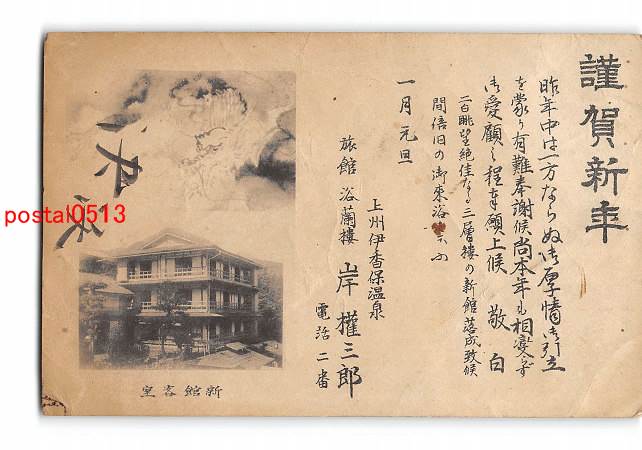 謹賀新年
昨年中は一方ならぬ御厚情御引立
を蒙り有難奉謝候尚本年も相変らず
御愛顧之程奉願上候 敬白
二白眺望絶佳なる三層楼の新館落成致候
間倍旧の御来浴
一月元旦
上州伊香保温泉
旅館 浴蘭楼 岸権三郎
電話二番
室客館新
postal0513